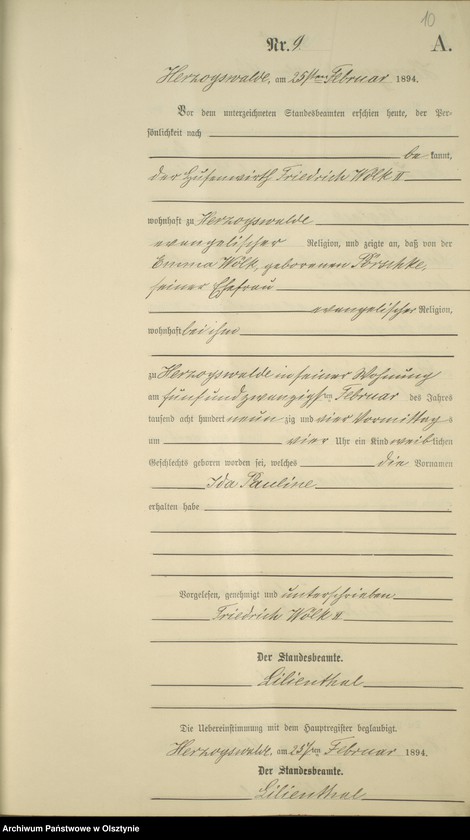 10
Nr. 9.
A.
Herzogswalde, am 25sten Februar 1894.
Vor dem unterzeichneten Standesbeamten erschien heute, der Per-
sönlichkeit nach
be kannt,
der Hufenwirth Friedrich Wölk II
wohnhaft zu Herzogswalde
evangelischer Religion, und zeigte an, daß von der
Emma Wölk, geborenen Pörschke,
seiner Ehefrau
evangelischer Religion,
wohnhaft bei ihm
zu Herzogswalde in seiner Wohnung
am fünfundzwanzigsten Februar des Jahres
tausend acht hundert neun zig und vier Vormittag s
um vier Uhr ein Kind weib lichen
Geschlechts geboren worden sei, welches die Vornamen
Ida Pauline
erhalten habe
Vorgelesen, genehmigt und unterschrieben
Friedrich Wölk II
Der Standesbeamte.
Lilienthal
Die Uebereinstimmung mit dem Hauptregister beglaubigt.
Herzogswalde, am 25sten Februar 1894.
Der Standesbeamte.
Lilienthal
Archiwum Państwowe w Olsztynie